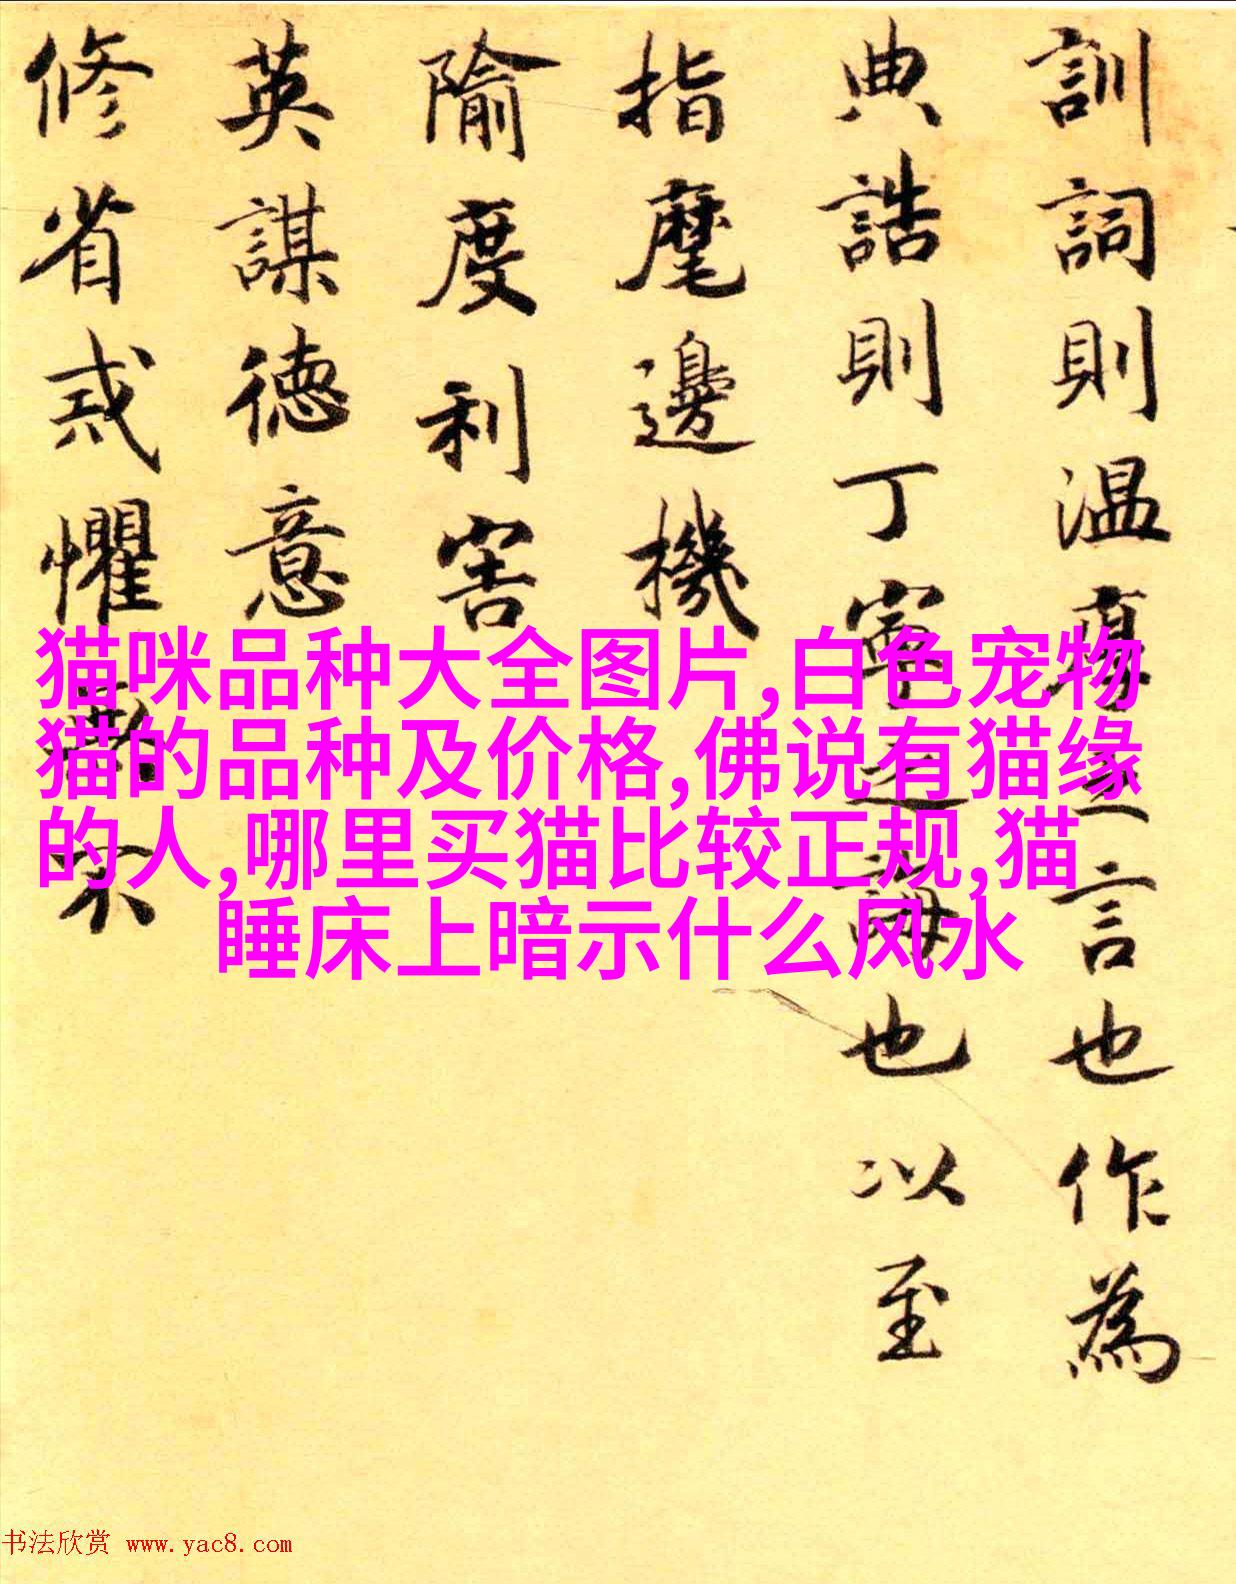 訓詞則温之言也作為
典誥則丁寧之誨也以至
指麾邊機
隃度利害
英謀德意
修省戒懼不
猫咪品种大全图片,白色宠物
猫的品种及价格,佛说有猫缘
的人,哪里买猫比较正规,猫
睡床上暗示什么风水
书法欣赏 www.yac8.com